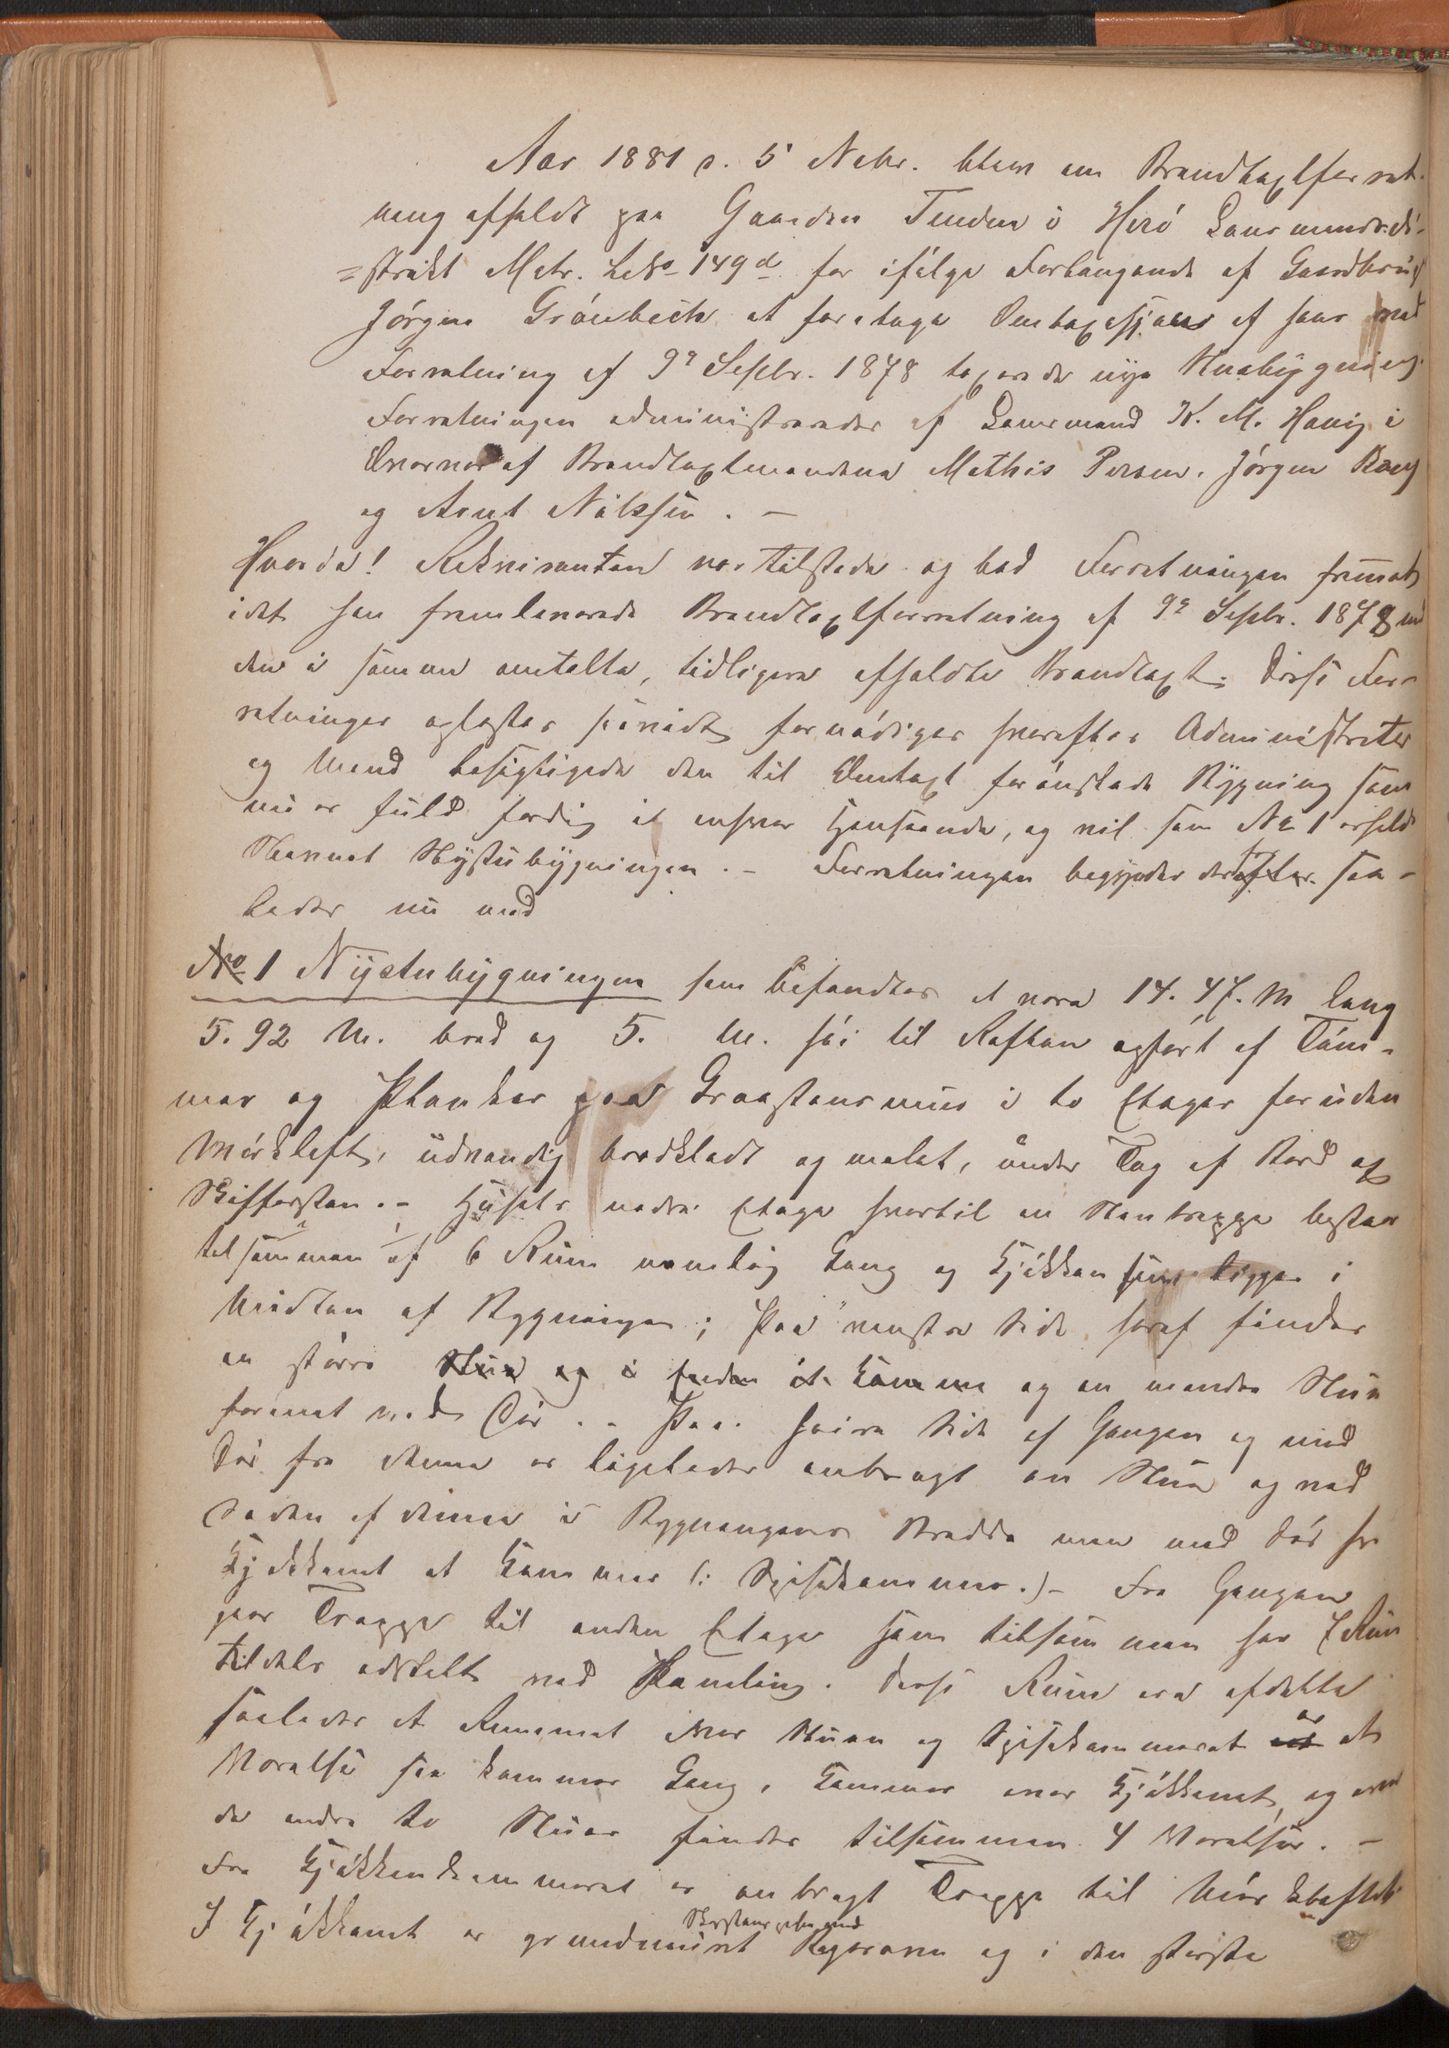 Aar 1881 d. 5 Novbr. blev en Brandtaxtforret-
ning afholdt paa Gaarden Tenden i Herö Lensmandsdi-
=strikt Matr. LNo 149d for ifölge Forlangende af Gaardbrug
Jörgen Grönbech at foretage Omtaxasjon af hans ved
Forretning af 9de Septbr. 1878 taxerede nye Husbygning.
Forretningen administreredes af Lensmand K. M. Havig i
Overvær af Brandtaxtmændene Mathis Persen, Jörgen
og Arnt Nilssen. —
Hvorda! Rekvirenten var tilstede og bad Forretningen fremmet
idet han fremleverede Brandtaxtforretning af 9de Septbr. 1878 med
den i samme omtalte, tidligere afholdte Brandtaxt. Disse For-
retninger oplæstes forsaavidt fornödiges hvorefter Administrator
og Mænd besigtigede den til Omtaxt forönskede Bygning som
nu er fuld færdig i enhver Henseende, og vil som No 1 erholde
Navnet Nystubygningen. – Forretningen begynder derefter saa-
ledes nu med
No 1 Nystubygningen som befandtes at være 14.47. M lang
5.92 M. bred og 5. M. höi til Raften opfört af Töm-
mer og Planker paa Graastensmur i to Etager foruden
Mörkloft, udvendig bordklædt og malet, under Tag af Bord og
Skiffersten. – Husets nedre Etage hvortil en Stentrappe bestaar
tilsammen af 6 Rum nemlig Gang og Kjökken som ligger i
Midten af Bygningen; Paa venstre Side heraf findes
en större Stue og i Enden et Kammer og en mindre Stue
forenet med Dör. – Paa höire Side af Gangen og med
Dör fra denne er ligeledes anbragt en Stue og ved
Siden af denne i Bygningens Bredde men med Dör fra
Kjökkenet et Kammer (: Spisekammer.) – Fra Gangen
gaar Trappe til anden Etage som tilsammen har 7 Rum
tildels adskilt ved Paneling. Disse Rum ere afdelte
saaledes at Rummet over Stuen og Spisekammeret er et
Værelse saa kommer Gang, Kammer over Kjökkenet, og over
de andre to Stuer findes tilsammen 4 Værelser. –
Fra Kjökkenkammeret er anbragt Trappe til Mörkloftet
I Kjökkenet er grundmuret Skorstens med Bageroven og i den störste